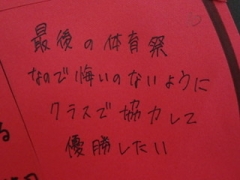 最後の体育祭
なので悔いのないように
クラスで協力して
優勝したい
る